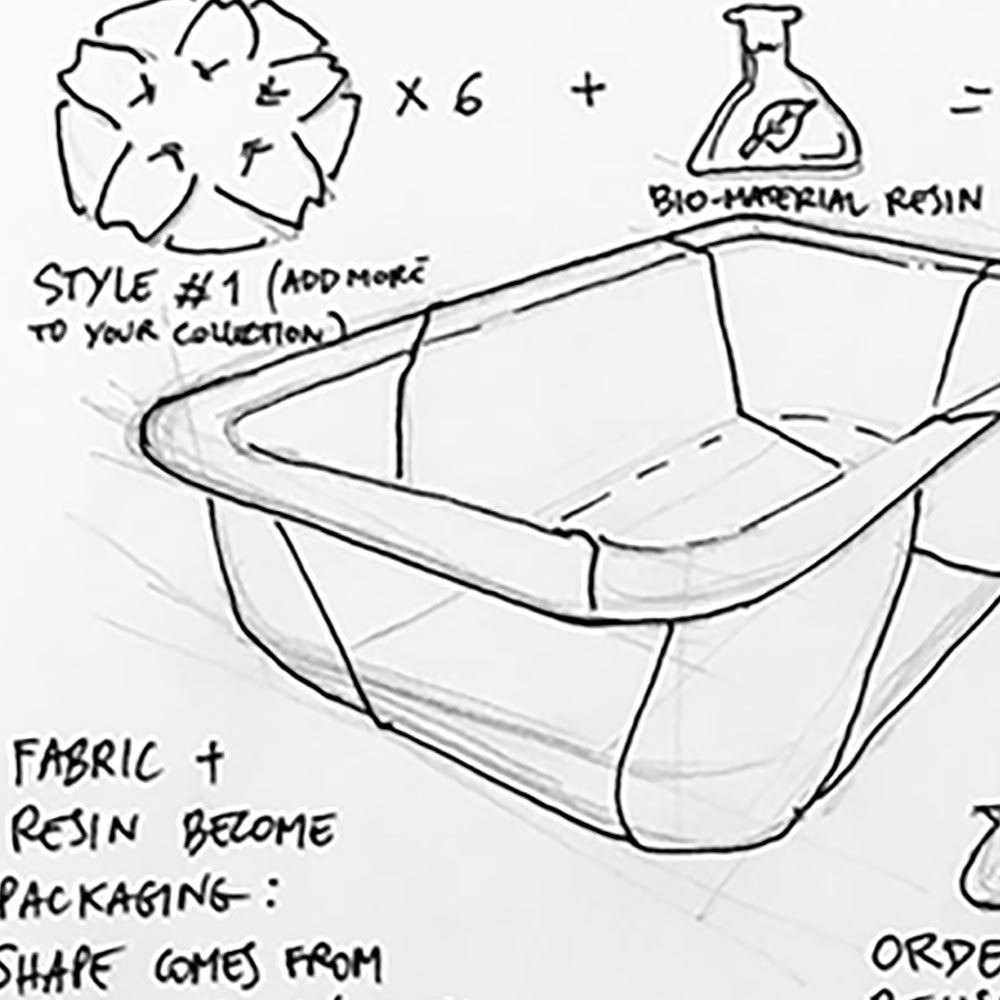 × 6 + =
BIO-MATERIAL RESIN
STYLE #1 (ADD MORE
TO YOUR COLLECTION)
FABRIC +
RESIN BECOME
PACKAGING:
SHAPE COMES FROM
ORDE